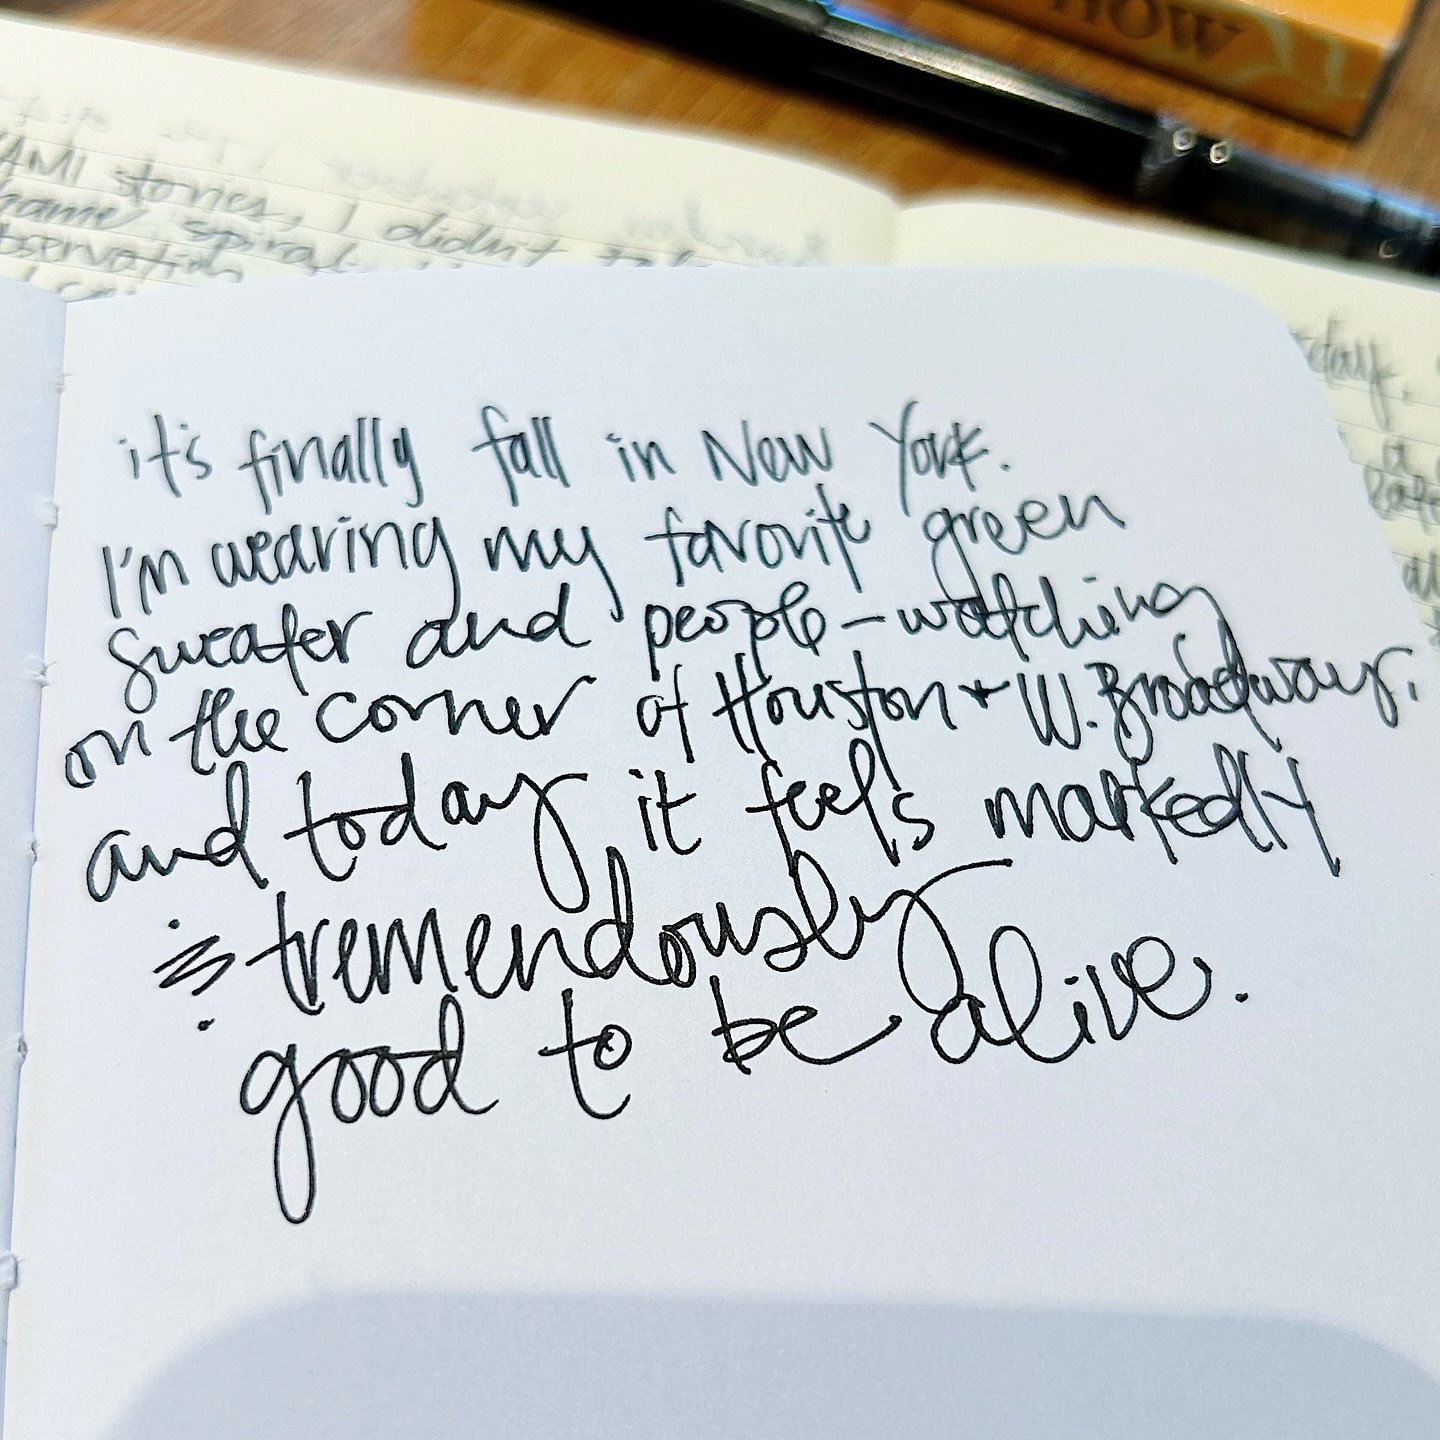 HOW
AMI stories, I didn't
it's finally fall in New York.
I'm wearing my favorite green
sweater and people-watching
on the corner of Houston + W. Broadway,
and today it feels markedly
& tremendously
good to be alive.